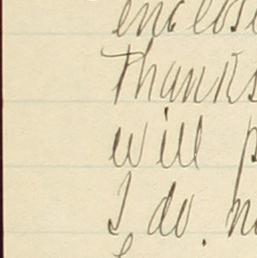 enclose
Thanks
will p
I do n